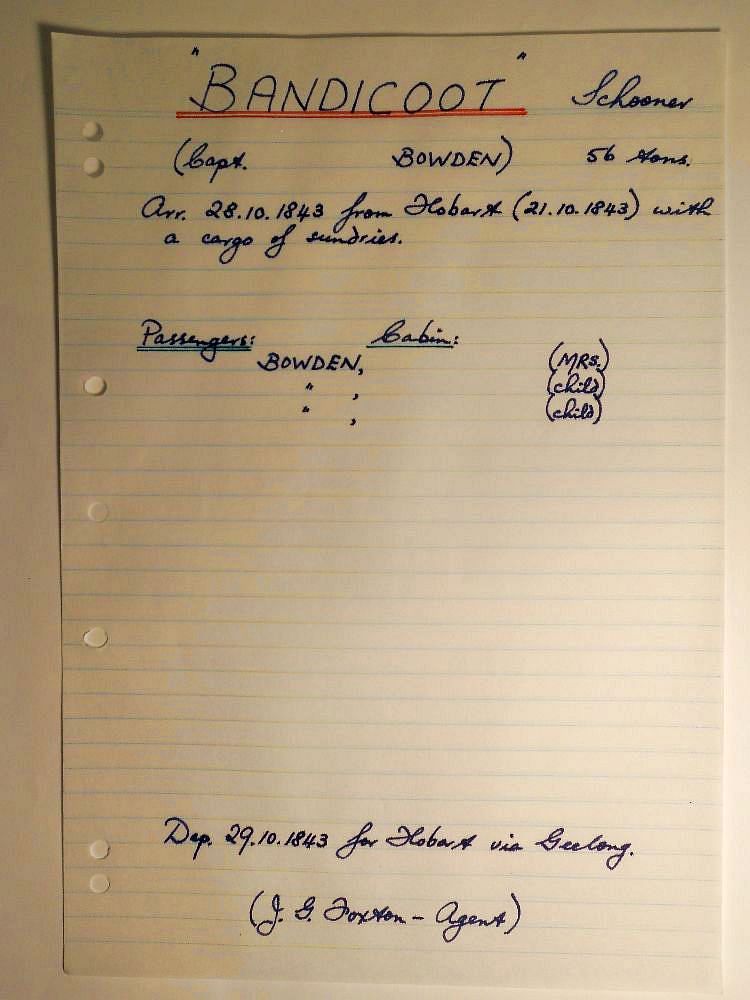 "BANDICOOT" Schooner
(Capt. BOWDEN) 56 tons.
Arr. 28.10.1843 from Hobart (21.10.1843) with
a cargo of sundries.
Passengers: Cabin:
BOWDEN, (MRS.)
" , (child)
" , (child)
Dep. 29.10.1843 for Hobart via Geelong.
(J. G. Foxton - Agent)